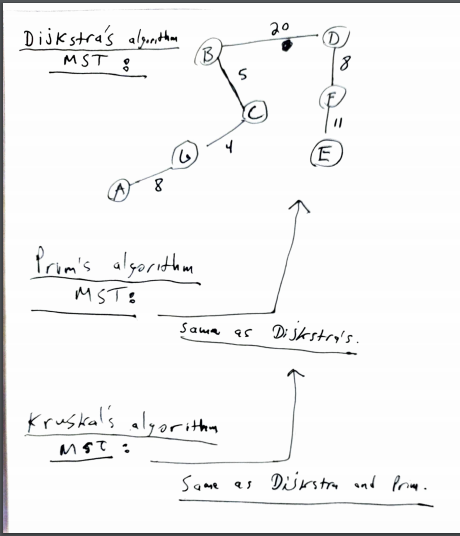 Dijkstra's algorithm
MST :
20
B
D
5
8
C
F
4
11
G
E
A
8
Prim's algorithm
MST:
Same as Dijkstra's.
Kruskal's algorithm
MST :
Same as Dijkstra and Prim.